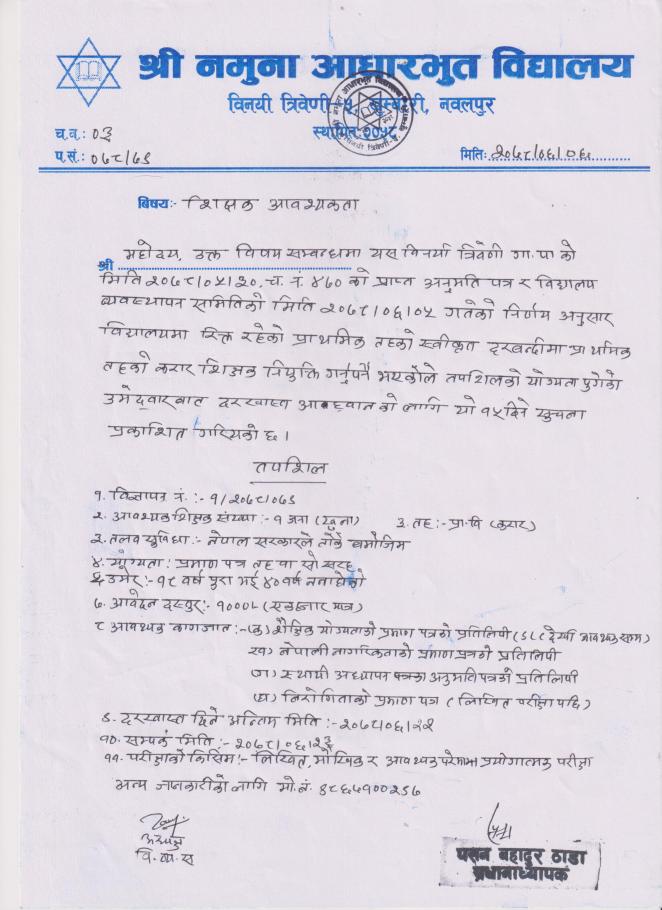 श्री नमुना आधारभुत विद्यालय
विनयी त्रिवेणी-५, नवलपुर
स्थापित २०५८
च.नं.: ०३
प.सं.: ०७८/७९
मिति: २०७८/०६/०६
बिषय:- शिक्षक आवश्यकता
श्री
महोदय, उक्त विषय सम्बन्धमा यस विनयी त्रिवेणी गा.पा को
मिति २०७८/०५/२०, च.नं. ४७० को प्राप्त अनुमति पत्र र विद्यालय
व्यवस्थापन समितिको मिति २०७८/०६/०५ गतेको निर्णय अनुसार
विद्यालयमा रिक्त रहेको प्राथमिक तहको स्वीकृत दरवन्दीमा प्राथमिक
तहको करार शिक्षक नियुक्ति गर्नुपर्ने भएकोले तपशिलको योग्यता पुगेको
उमेदवारबाट दरखास्त आवह्वानको लागि यो १५ दिने सूचना
प्रकाशित गरिएको छ ।
तपशिल
१. विज्ञापन नं. :- १/२०७८/०७९
२. आवश्यक शिक्षक संख्या :- १ जना (खुला) ३. तह :- प्रा.वि (करार)
३. तलव सुविधा :- नेपाल सरकारले तोके बमोजिम
४. योग्यता : प्रमाण पत्र तह वा सो सरह
उमेर :- १८ वर्ष पुरा भई ४० वर्ष ननाघेको
७. आवेदन दस्तुर :- १०००/- (एकहजार मात्र)
८ आवश्यक कागजात :- (क) शैक्षिक योग्यताको प्रमाण पत्रको प्रतिलिपी (SLC देखी आवश्यक सम्म)
ख) नेपाली नागरिकताको प्रमाण पत्रको प्रतिलिपी
(ग) स्थायी अध्यापन पत्रका अनुमतिपत्रको प्रतिलिपी
(घ) निरोगिताको प्रमाण पत्र (लिखित परीक्षा पछि)
९. दरखास्त दिने अन्तिम मिति :- २०७८/०६/२२
१०. सम्पर्क मिति :- २०७८/०६/२३
११. परीक्षाको किसिम :- लिखित, मौखिक र आवश्यक परेमा प्रयोगात्मक परीक्षा
अन्य जानकारीको लागि मो.नं. ९८६५१००२८७
अध्यक्ष
वि.व्य.स
बहादुर ठाडा
प्रधानाध्यापक